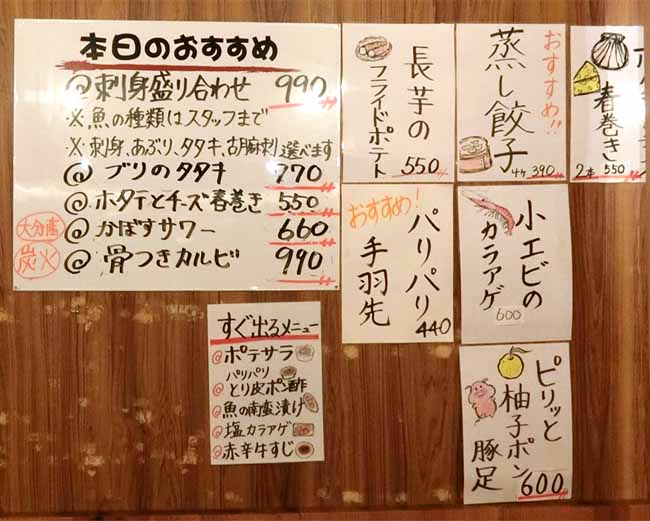 本日のおすすめ
@刺身盛り合わせ 990
※魚の種類はスタッフまで
※刺身、あぶり、タタキ、古麻刺 選べます
@ ブリのタタキ 770
@ホタテとチーズ春巻き 550
大分産 @かぼすサワー 660
炭火 @骨つきカルビ 990
長芋の
フライドポテト
550
おすすめ!!
蒸し餃子
4ヶ 390
春巻き
2本 550
おすすめ!
パリパリ
手羽先
440
小エビの
カラアゲ
600
すぐ出るメニュー
@ポテサラ
パリパリ
@とり皮ポン酢
@魚の南蛮漬け
@塩カラアゲ
@赤辛牛すじ
ピリッと
柚子ポン
豚足
600